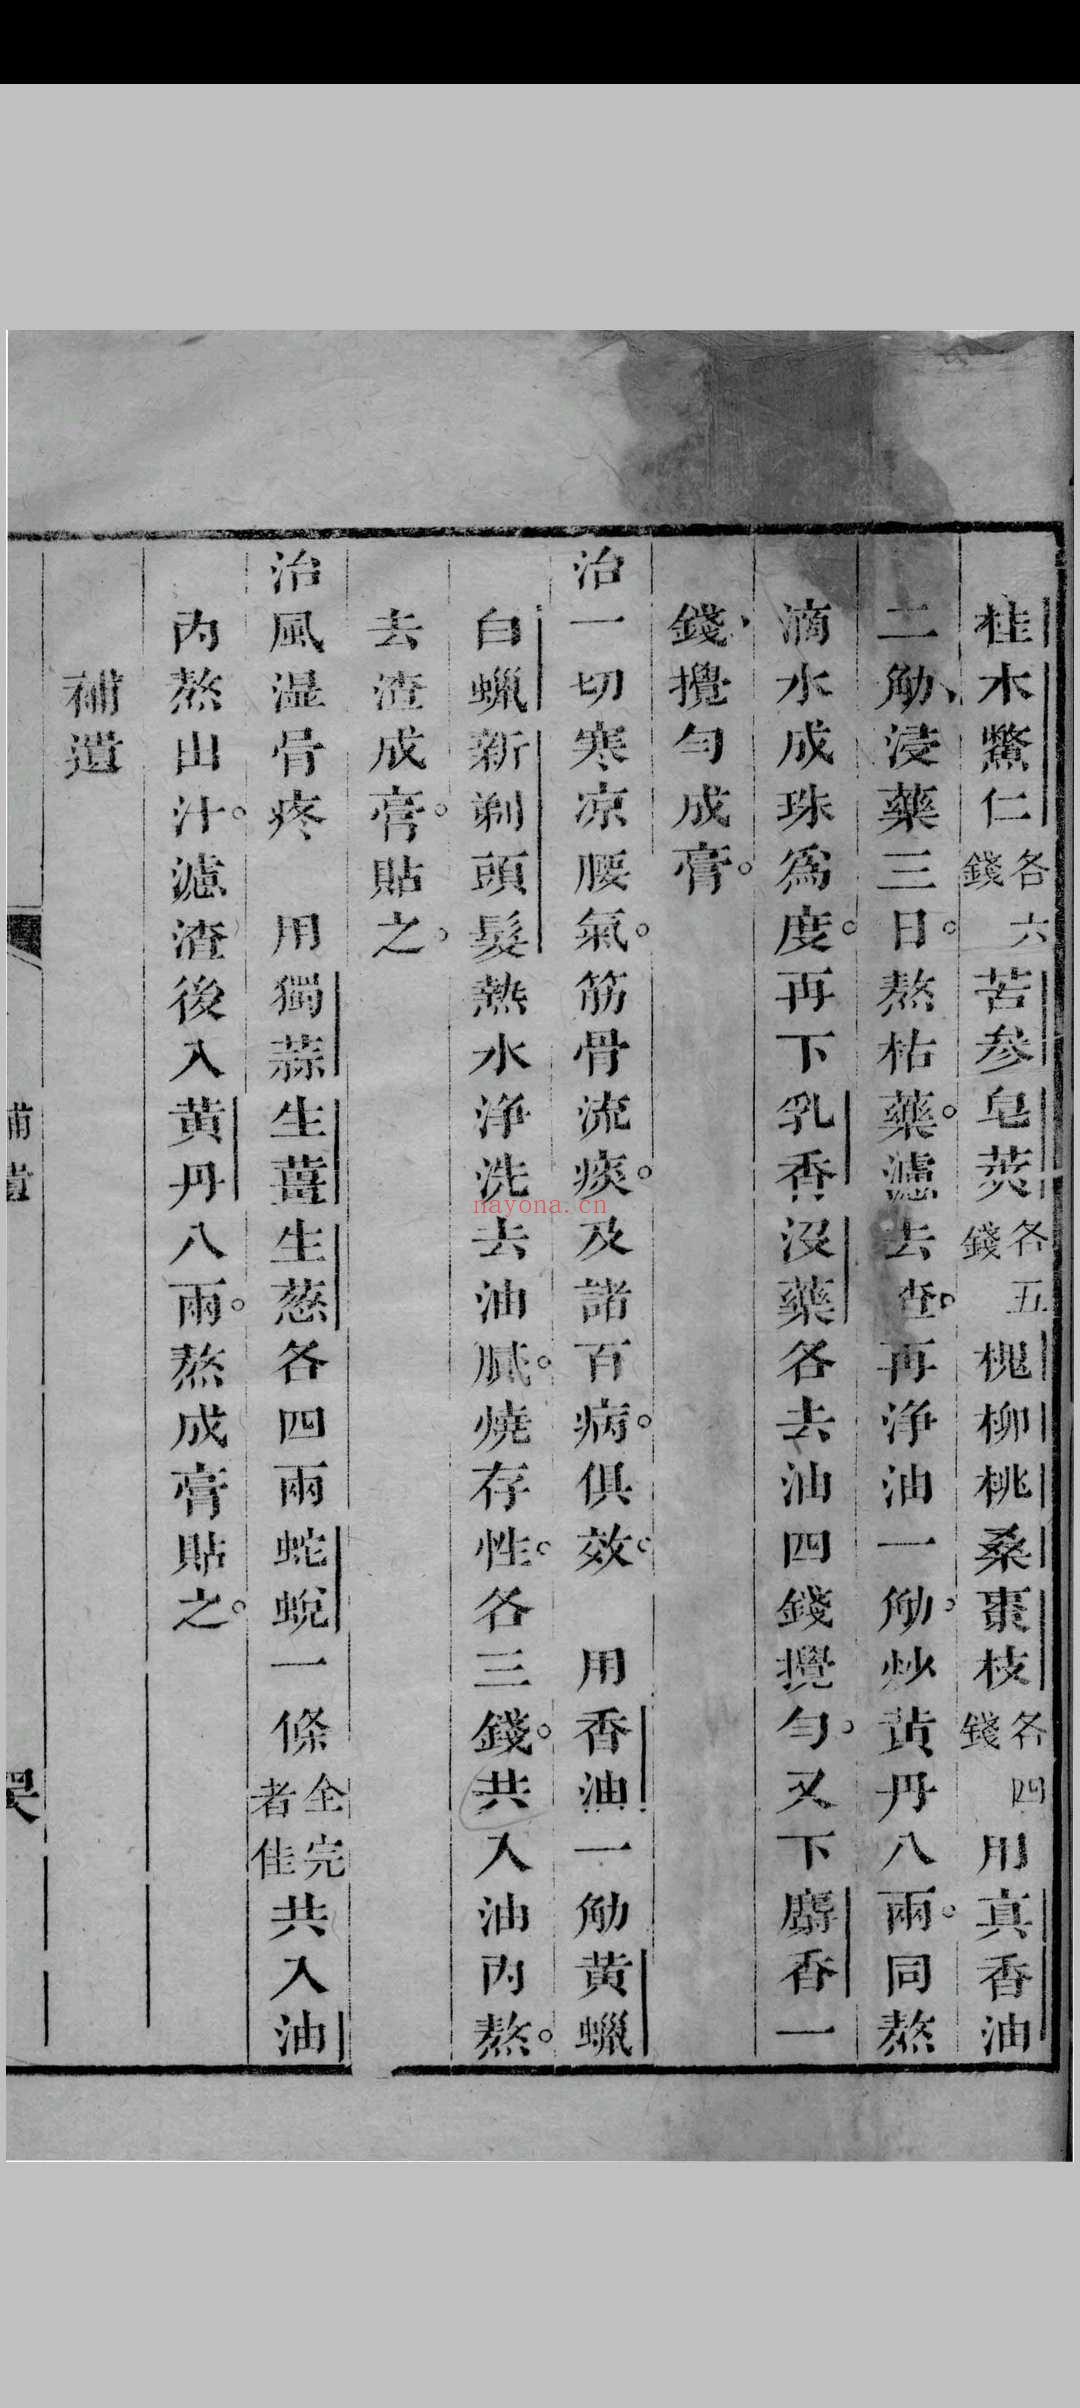 桂木鱉仁各六錢苦參皂莢各五錢槐柳桃桑棗枝各四錢用真香油
二觔、浸藥三日。熬枯藥。濾去查。再净油一觔。炒黃丹八兩。同熬
滴水成珠爲度。再下乳香沒藥各去油四錢攪勻。又下麝香一
錢、攪勻成膏。
治一切寒凉腰氣。筋骨流痰。及諸百病。俱效。用香油一觔黃蠟
白蠟新剃頭髮熱水净洗去油膩。燒存性。各三錢。共入油內熬。
去渣成膏。貼之。
治風湿骨疼 用獨蒜生薑生葱各四兩蛇蛻一條全完者佳共入油
內熬出汁。濾渣後入黃丹八兩。熬成膏貼之。
補遺
補遺
nayona.cn